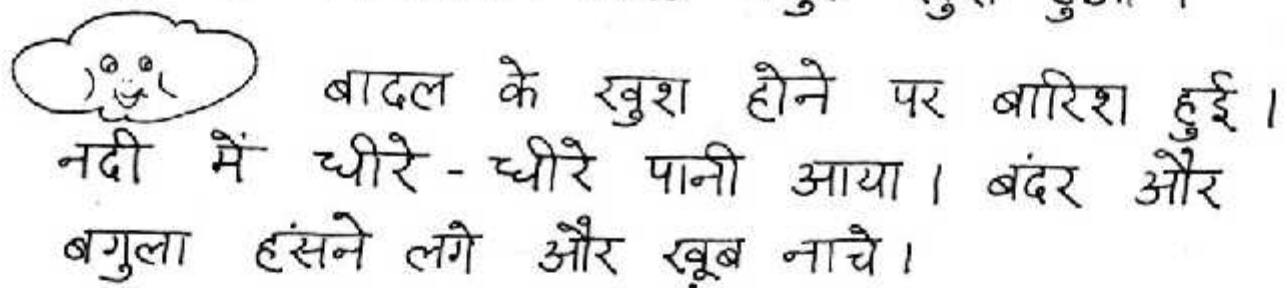 बादल के खुश होने पर बारिश हुई।
नदी में धीरे - धीरे पानी आया। बंदर और
बगुला हंसने लगे और खूब नाचे।